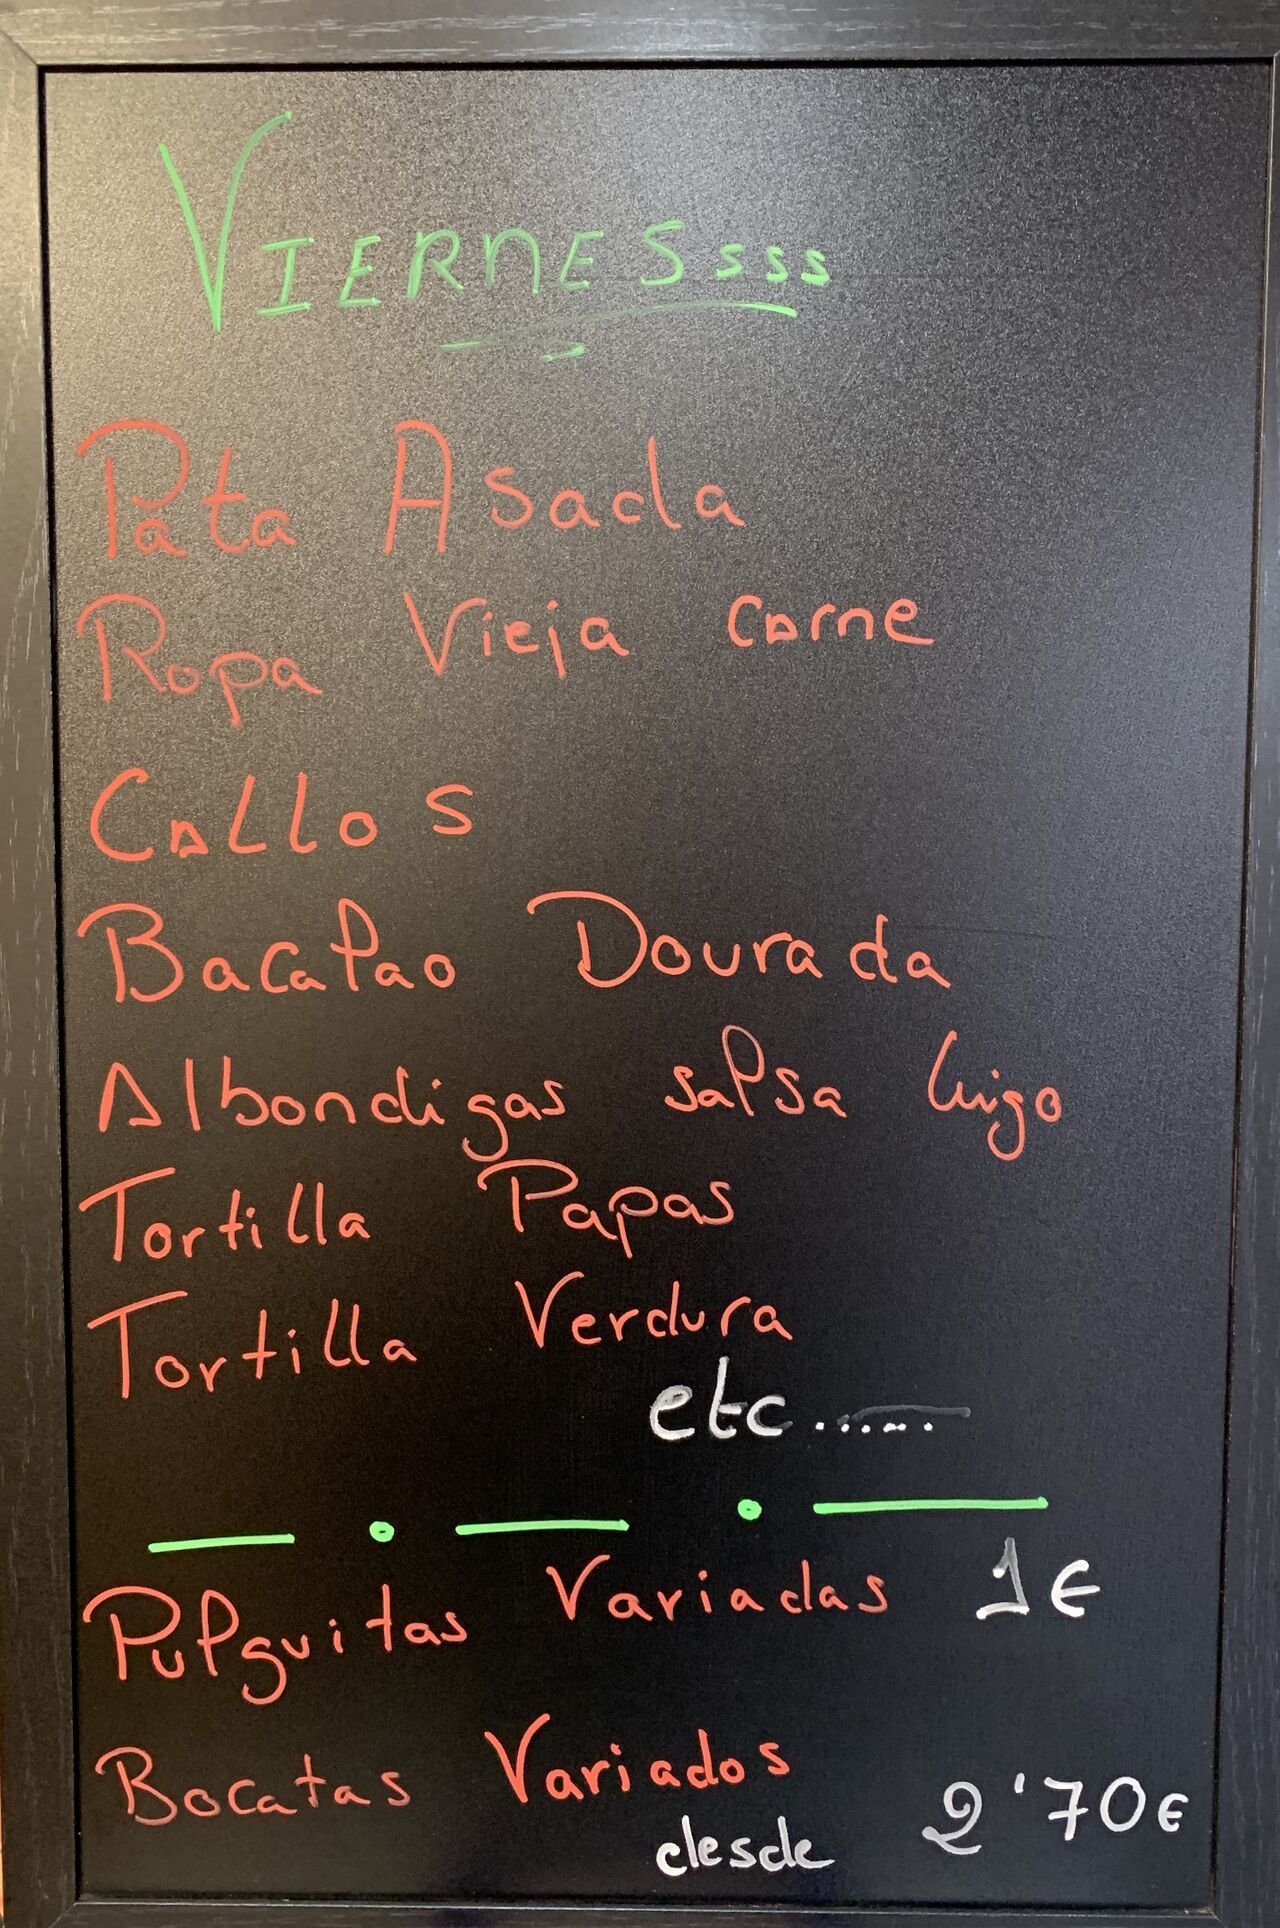 VIERNESsss
Pata Asada
Ropa Vieja carne
Callos
Bacalao Dourada
Albondigas salsa higo
Tortilla Papas
Tortilla Verdura
etc......
Pulguitas Variadas 1€
Bocatas Variados
desde 2'70€